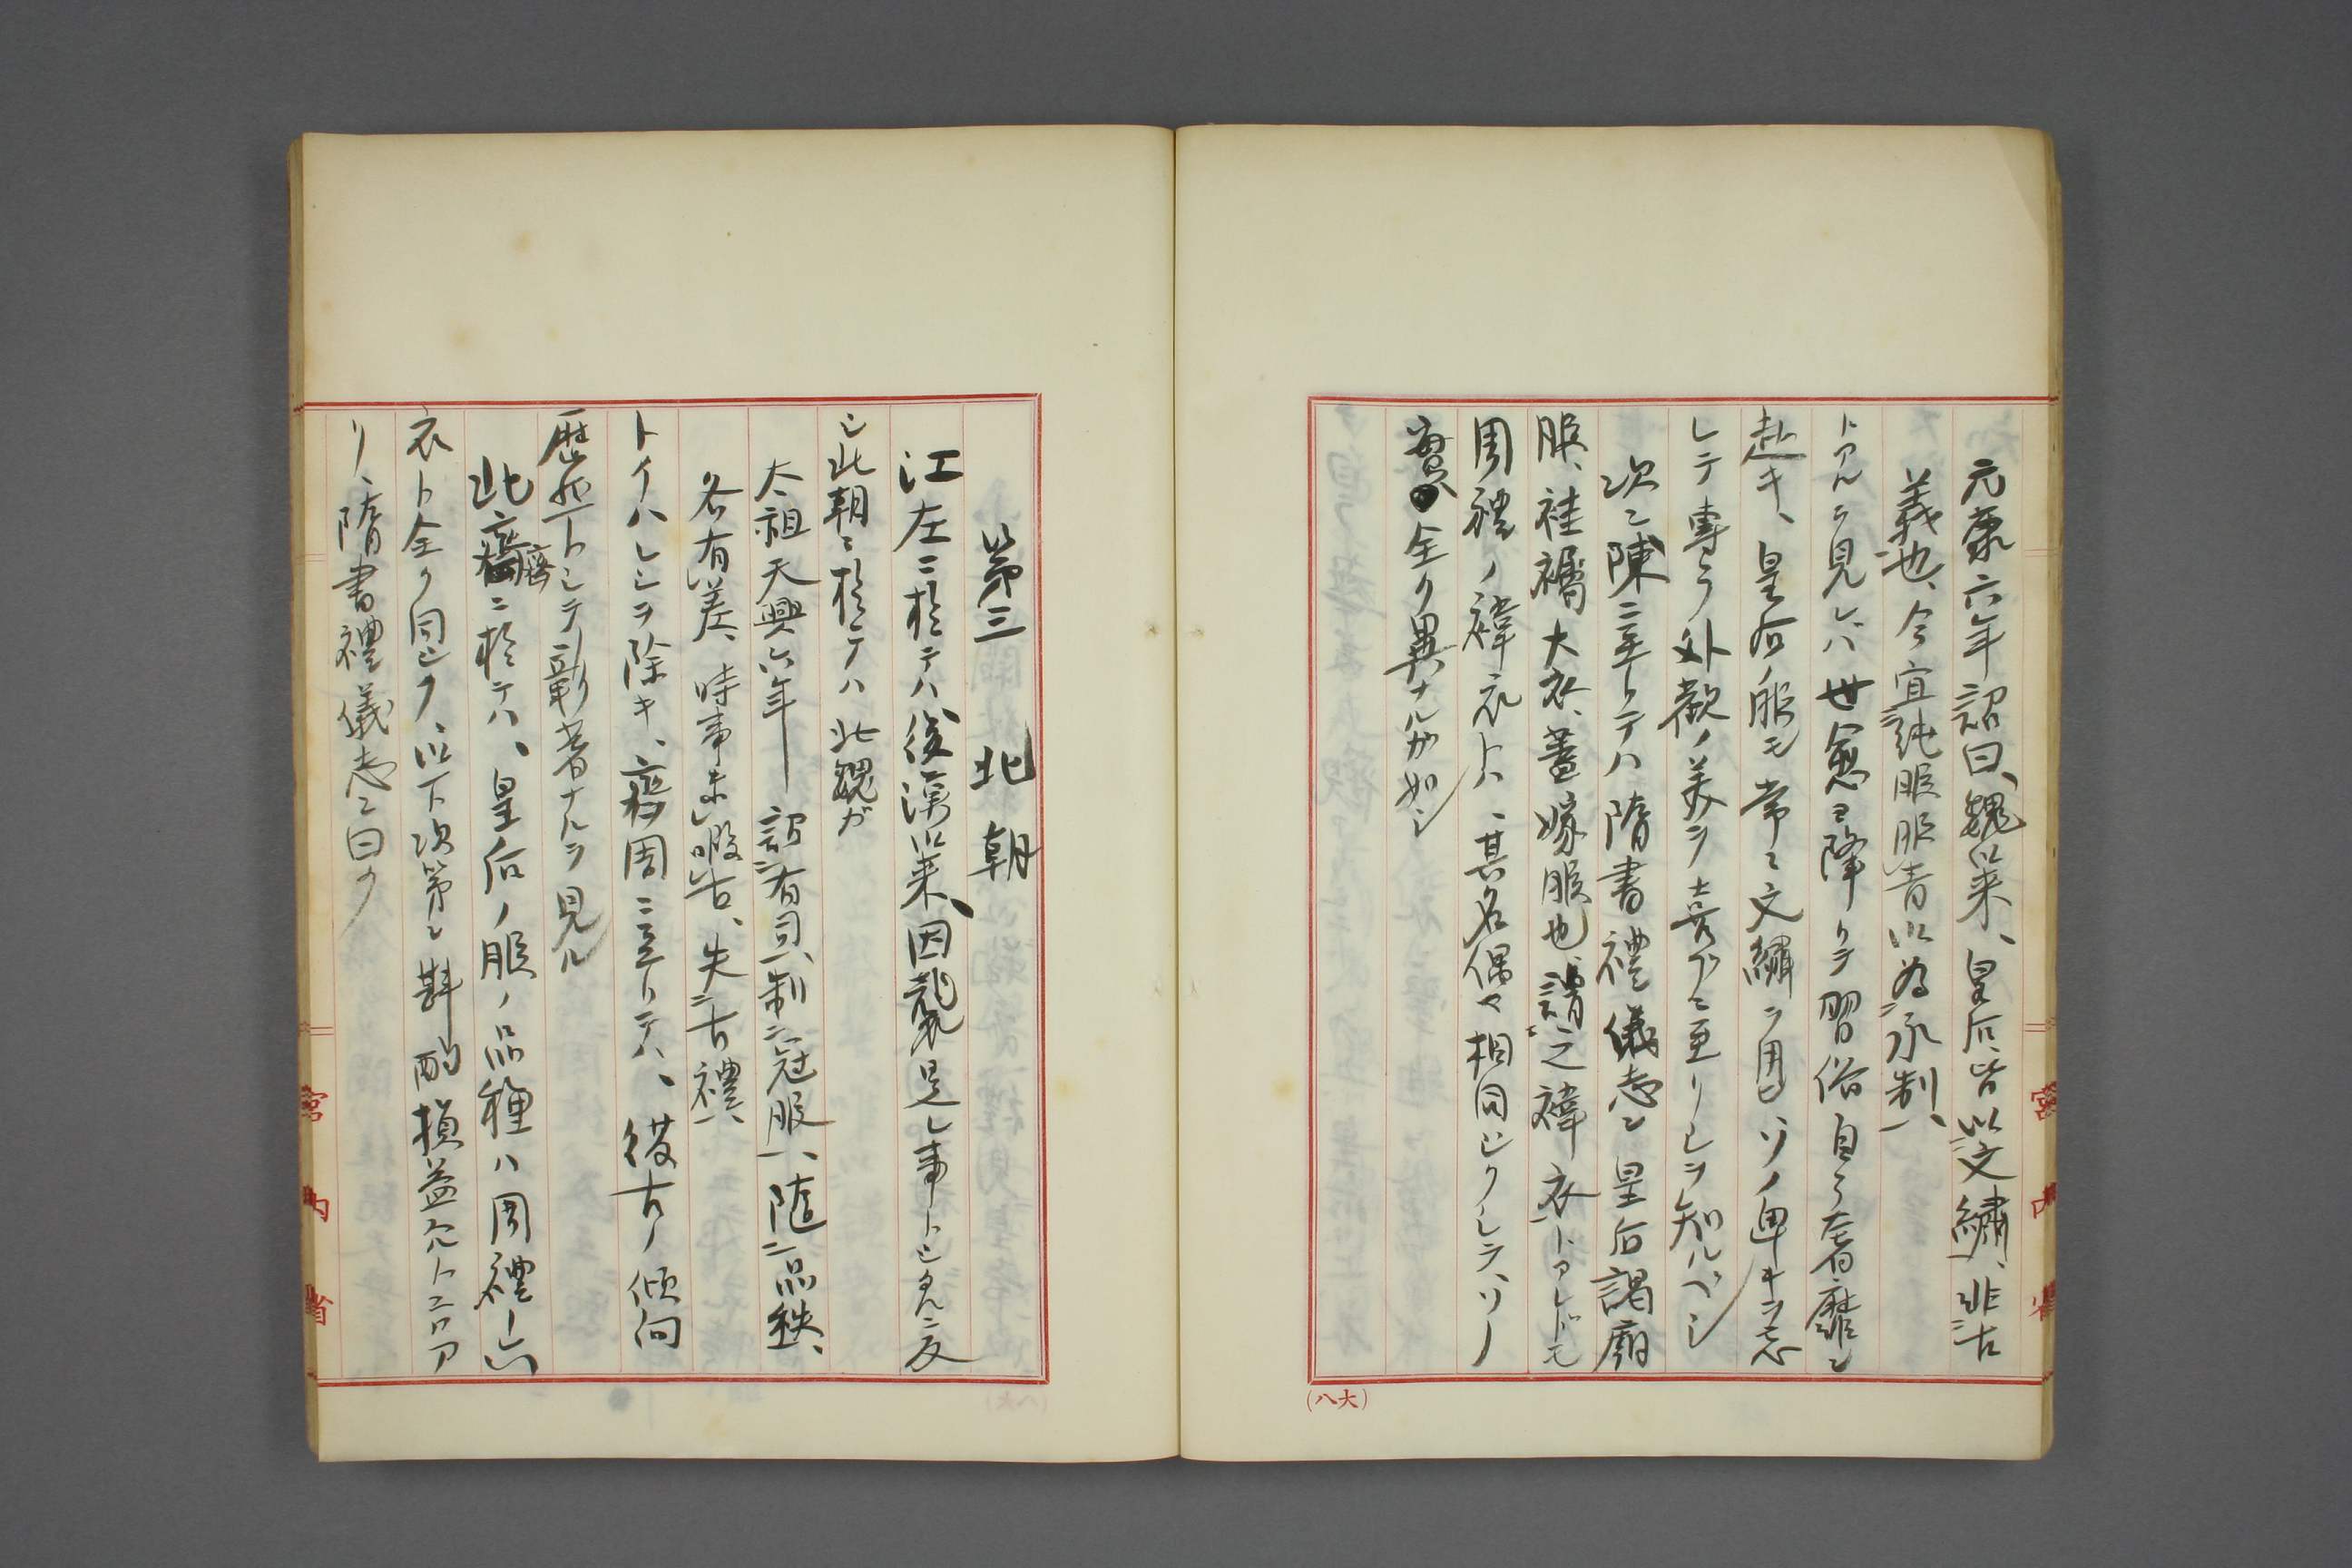 元康六年詔曰、魏以来、皇后皆以文繡、非古
義也、今宜純服服青以為永制、
トアルヲ見レバ世愈ヨ降リテ習俗自ラ奢靡ニ
赴キ、皇后ノ服モ常ニ文繡ヲ用ヒ、ソノ卑キヲ忘
レテ専ラ外観ノ美ヲ喜ブニ至リシヲ知ルベシ
次ニ陳ニ至リテハ隋書禮儀志ニ皇后謁廟
服、袿䙱大衣、蓋嫁服也、謂之褘衣トアレドモ
周禮ノ褘衣トハ、其名偶々相同ジクシテ、ソノ
實全ク異ナルガ如シ
第三 北朝
江左ニ於テハ後漢以来、因襲是レ事トシタルニ反
シ北朝ニ於テハ北魏ガ
太祖天興六年 詔有司、制冠服、随品秩、
各有差、時事未暇古、失古禮、
トイハレシヲ除キ、齊周ニ至リテハ、復古ノ傾向
歴然トシテ彰著ナルヲ見ル
北齊ニ於テハ、皇后ノ服ノ品種ハ周禮ノ六
齊
衣ト全ク同ジク、以下次第ニ斟酌損益ヲ
リ、隋書禮儀志ニ曰ク
宮内省
宮内省
(大八)